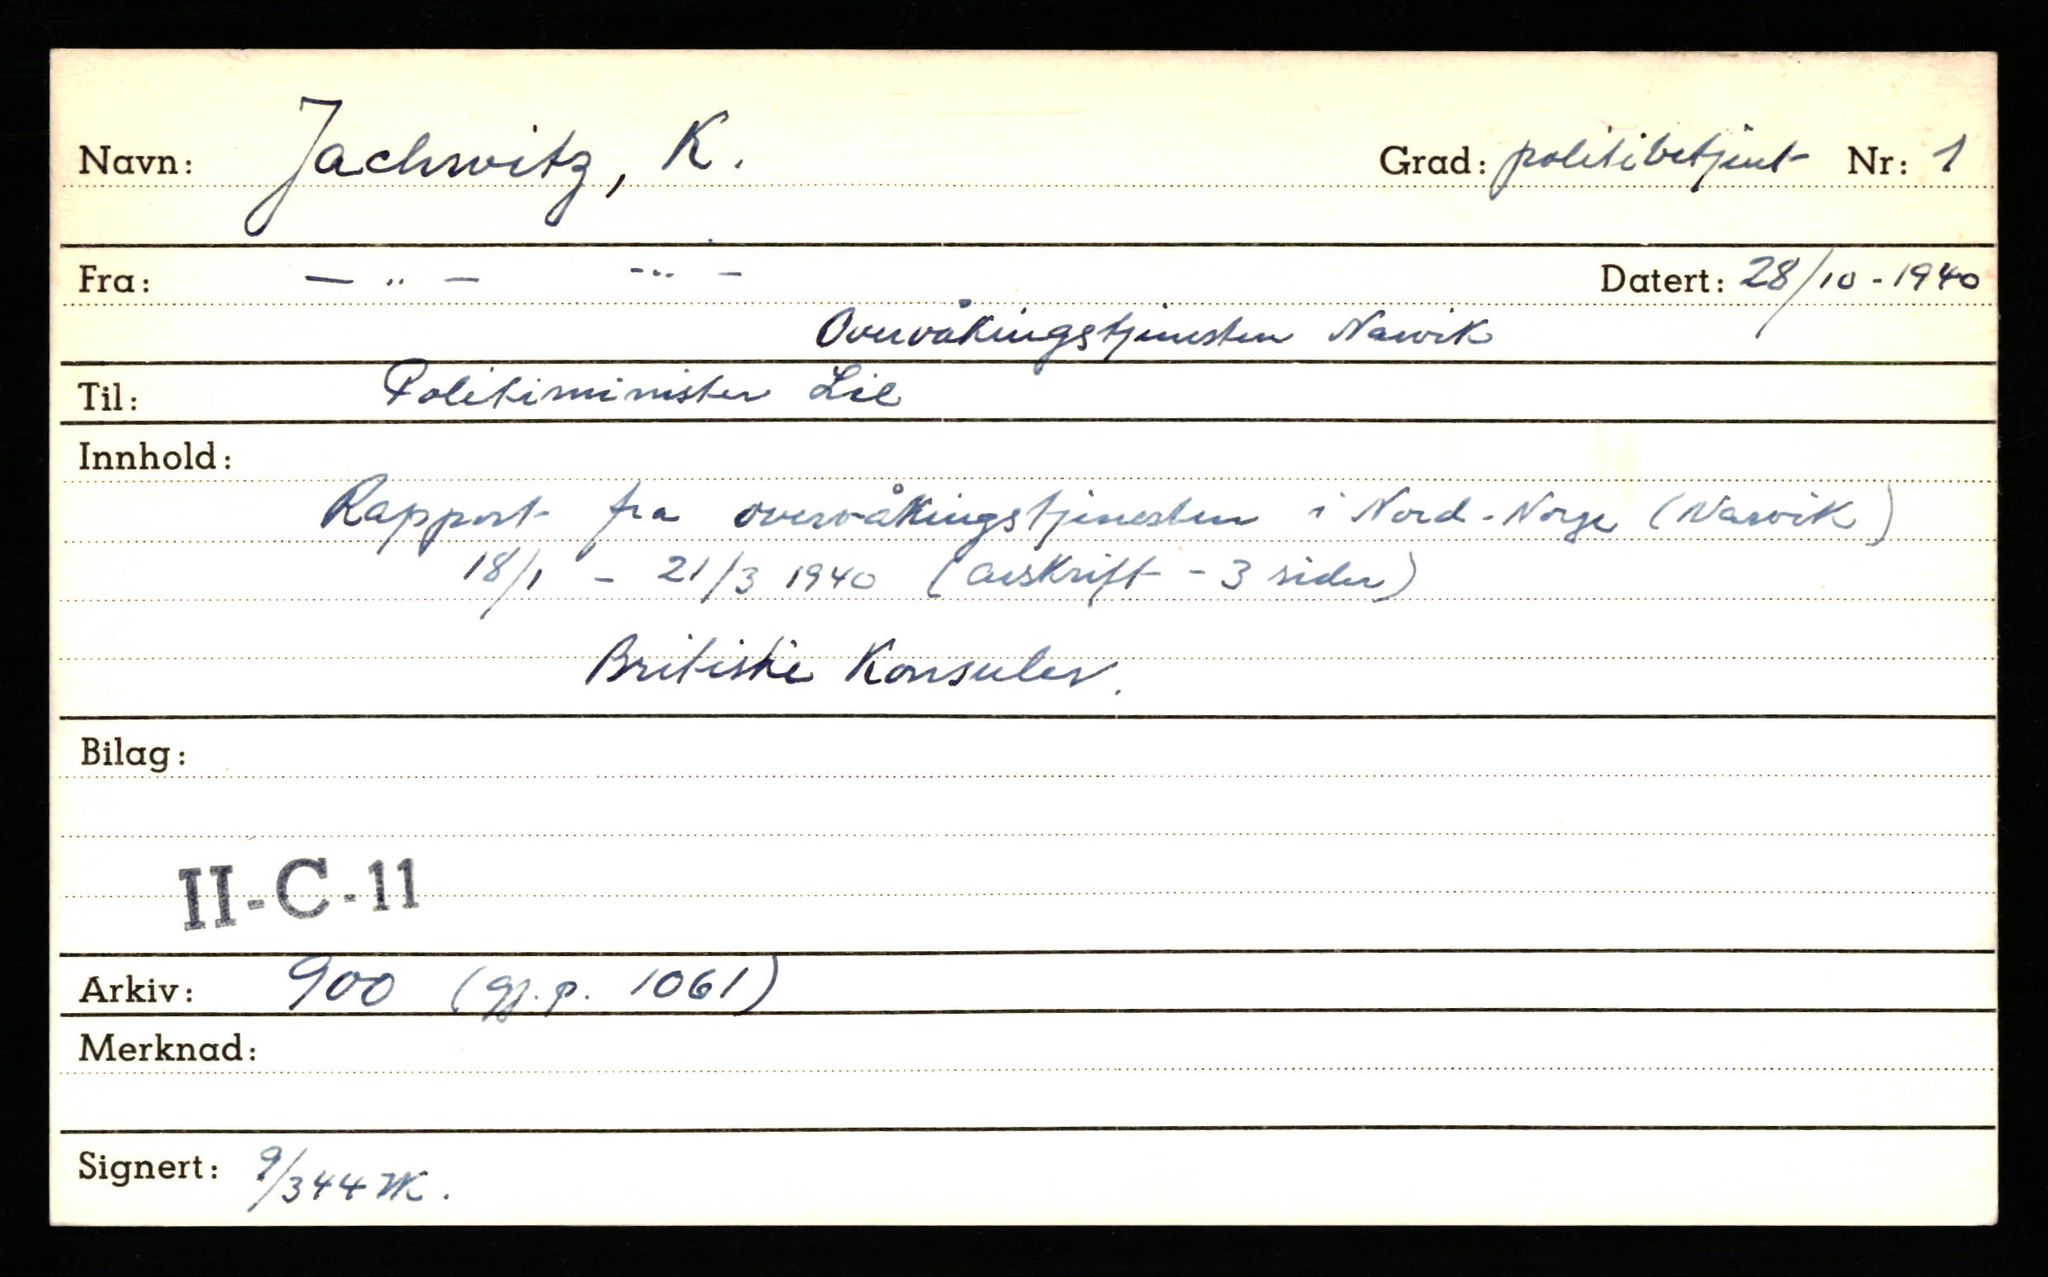 Navn: Jachwitz, K. Grad: politibetjent Nr: 1
Fra: — " — — " — Datert: 28/10-1940
Overvåkingstjenesten Narvik
Til: Politiminister Lie
Innhold:
Rapport fra overvåkingstjenesten i Nord-Norge (Narvik)
18/1 - 21/3 1940 (avskrift - 3 sider)
Britiske Konsuler.
Bilag:
II-C-11
Arkiv: 900 (gj.p. 1061)
Merknad:
Signert: 9/3 44